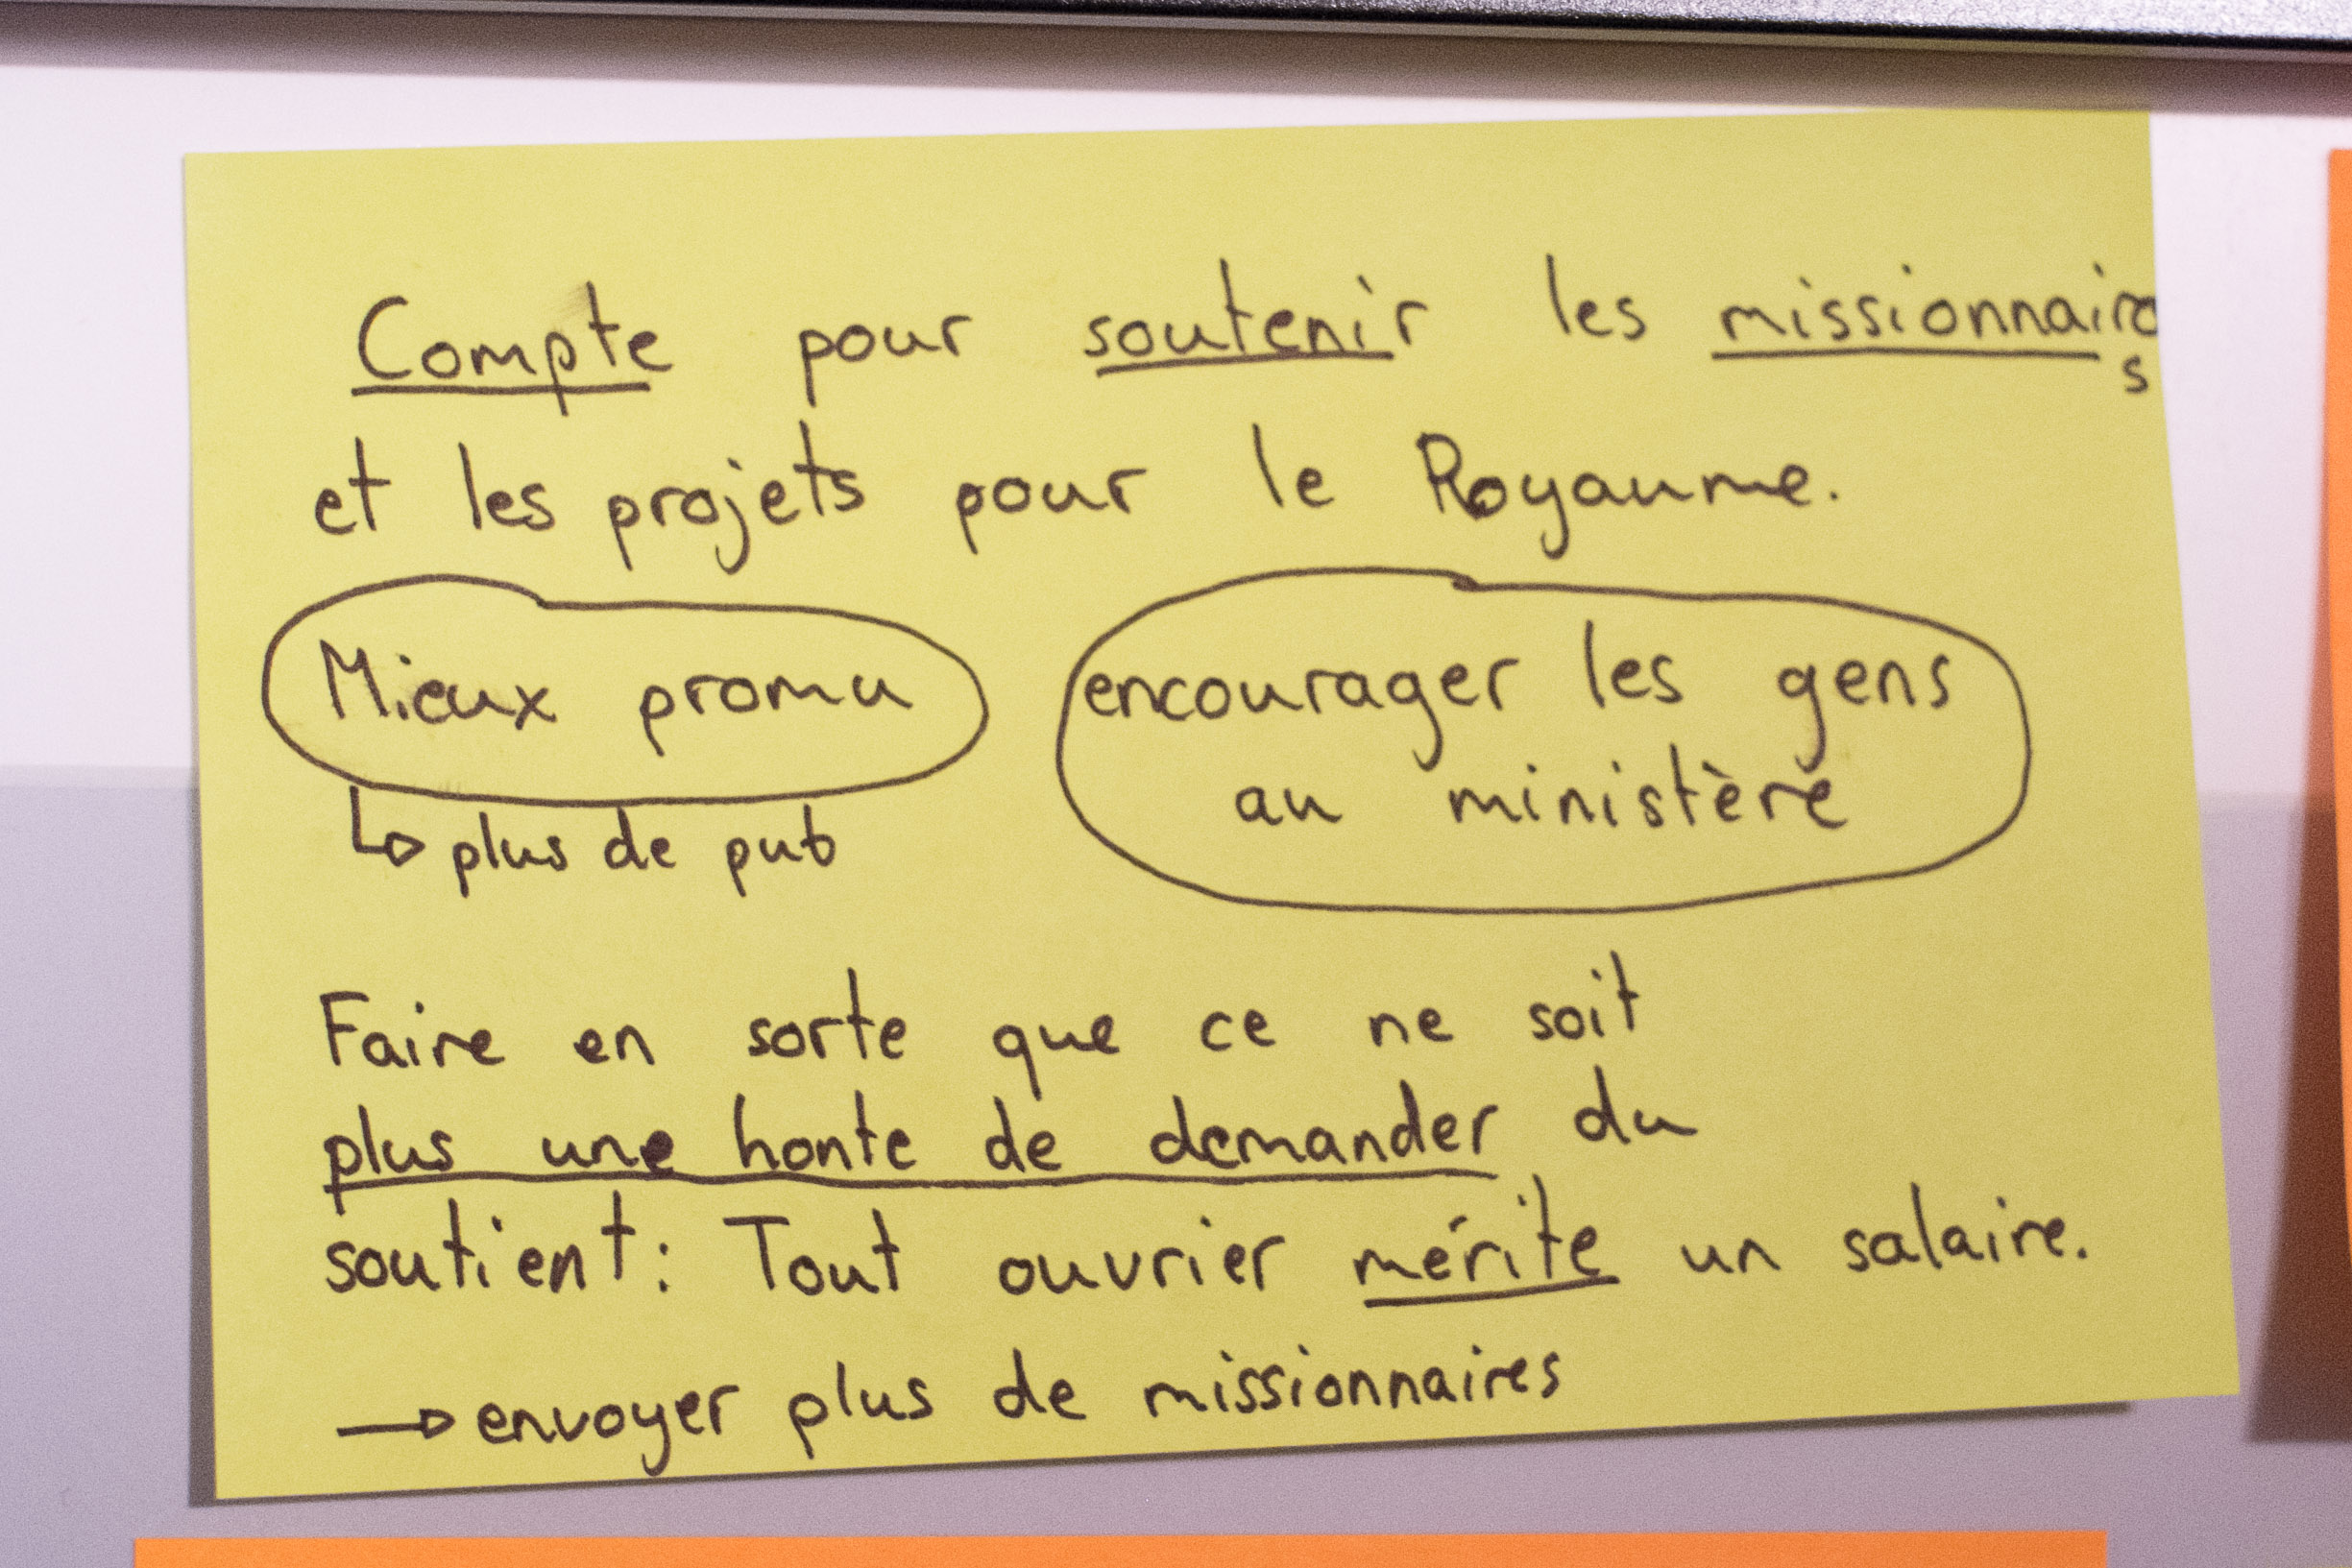 Compte pour soutenir les missionnaires
et les projets pour le Royaume.
Mieux promu
↳ plus de pub
encourager les gens
au ministère
Faire en sorte que ce ne soit
plus une honte de demander du
soutient : Tout ouvrier mérite un salaire.
→ envoyer plus de missionnaires